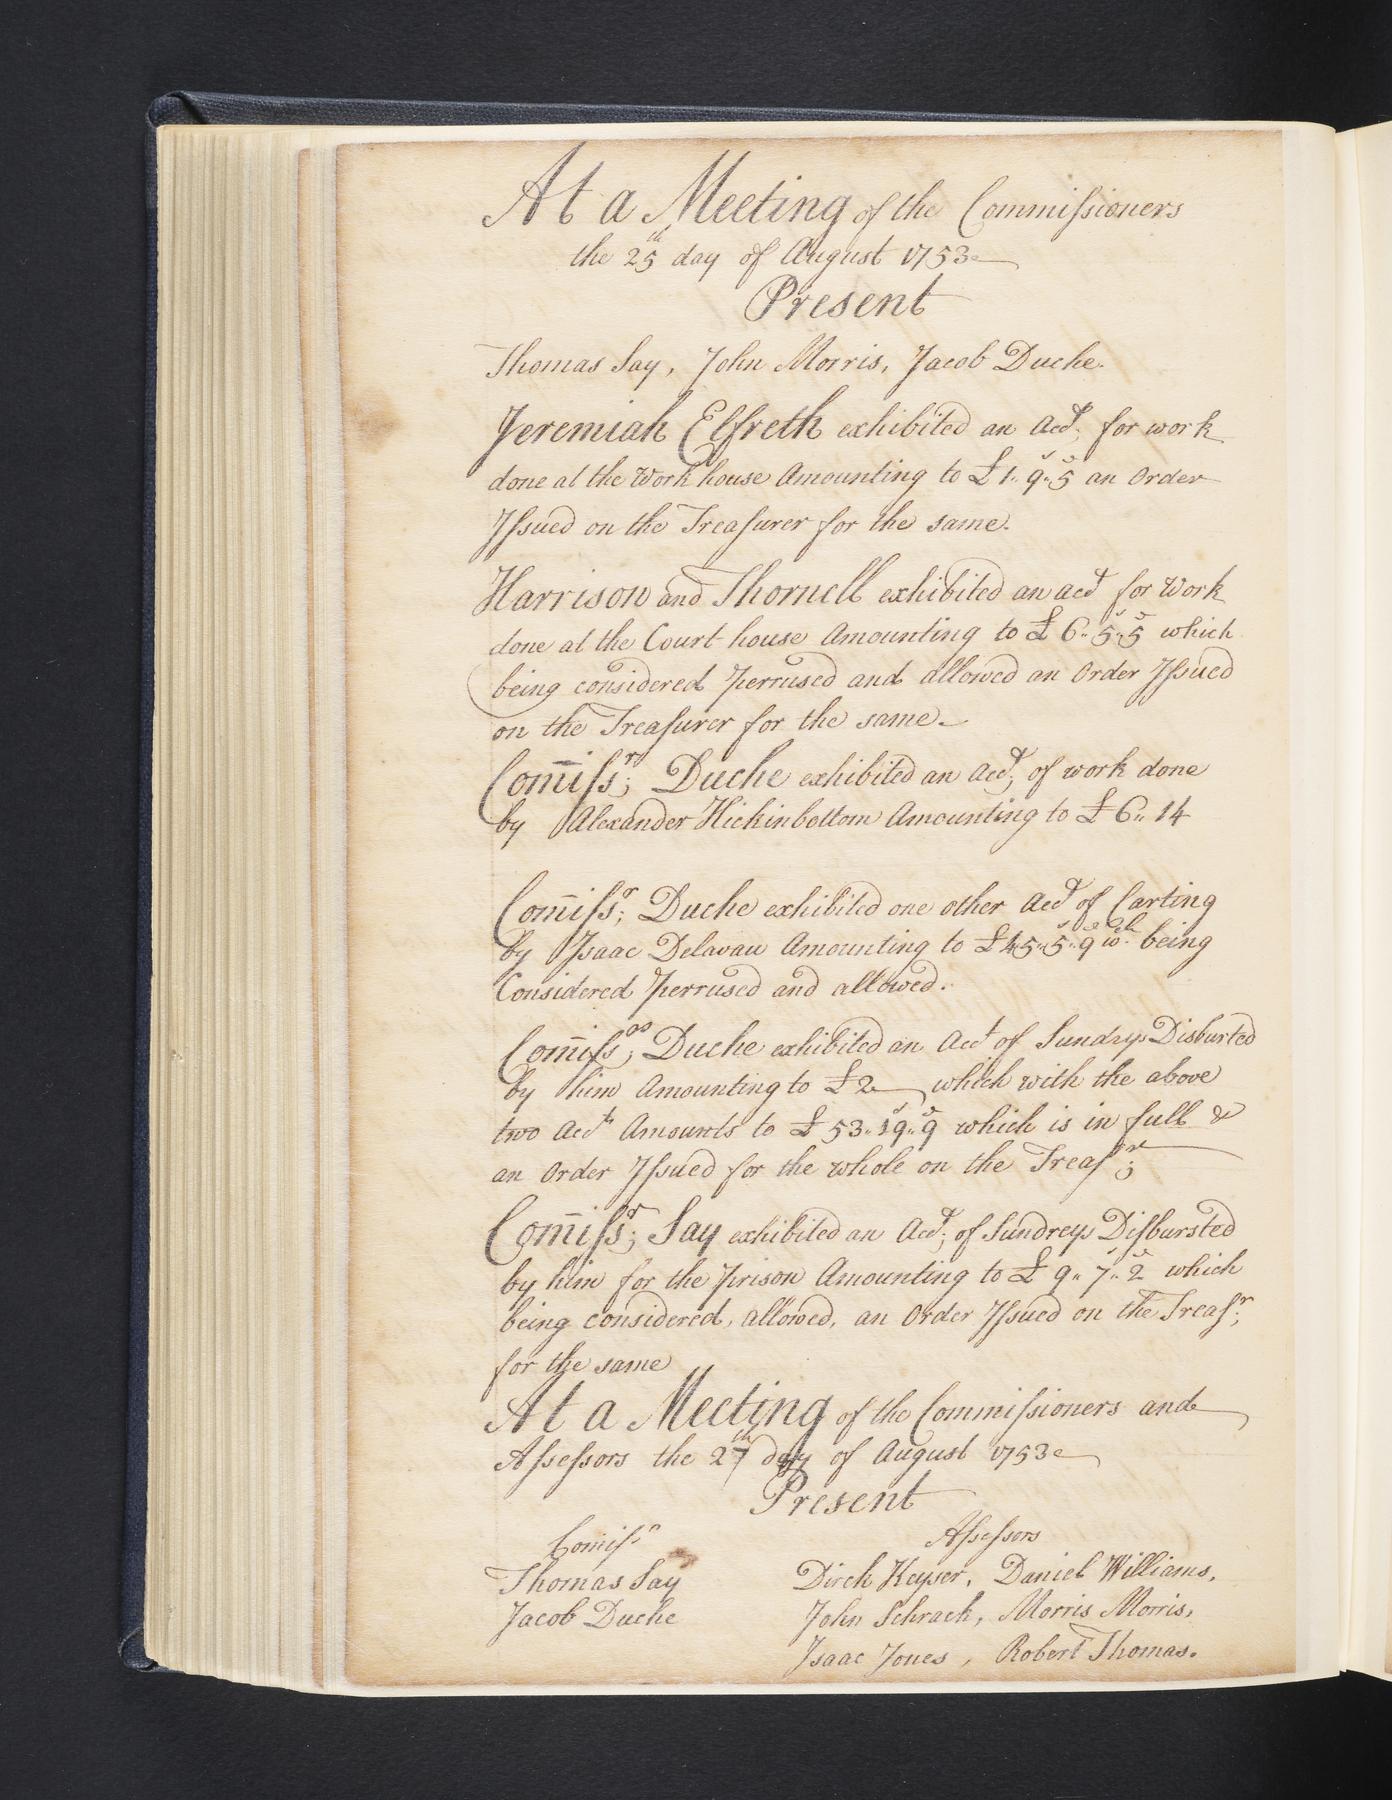 At a Meeting of the Commissioners
the 25th day of August 1753
Present
Thomas Say, John Morris, Jacob Duche.
Jeremiah Elfreth exhibited an Acct; for work
done at the Work house Amounting to £1„9„5 an Order
Issued on the Treasurer for the same.
Harrison and Thornell exhibited an acct for Work
done at the Court house Amounting to £6„5„5 which
being considered perrused and allowed an Order Issued
on the Treasurer for the same.
Com̄issr; Duche exhibited an Acct; of work done
by Alexander Hickinbottom Amounting to £6„14
Com̄issr; Duche exhibited one other Acct of Carting
by Isaac Delavau Amounting to £45„5„9 wch being
Considered perrused and allowed.
Com̄issrs; Duche exhibited an Acct of Sundrys Disbursted
by him Amounting to £2 which with the above
two Accts Amounts to £53„19„9 which is in full &
an Order Issued for the whole on the Treasrr;
Com̄issr; Say exhibited an Acct; of Sundreys Disbursted
by him for the prison Amounting to £9„7„2 which
being considered, allowed, an Order Issued on the Treasr;
for the same
At a Meeting of the Commissioners and
Assessors the 27th day of August 1753
Present
Comissrs Assessors
Thomas Say Dirck Keyser, Daniel Williams,
Jacob Duche John Schrack, Morris Morris,
Isaac Jones, Robert Thomas.